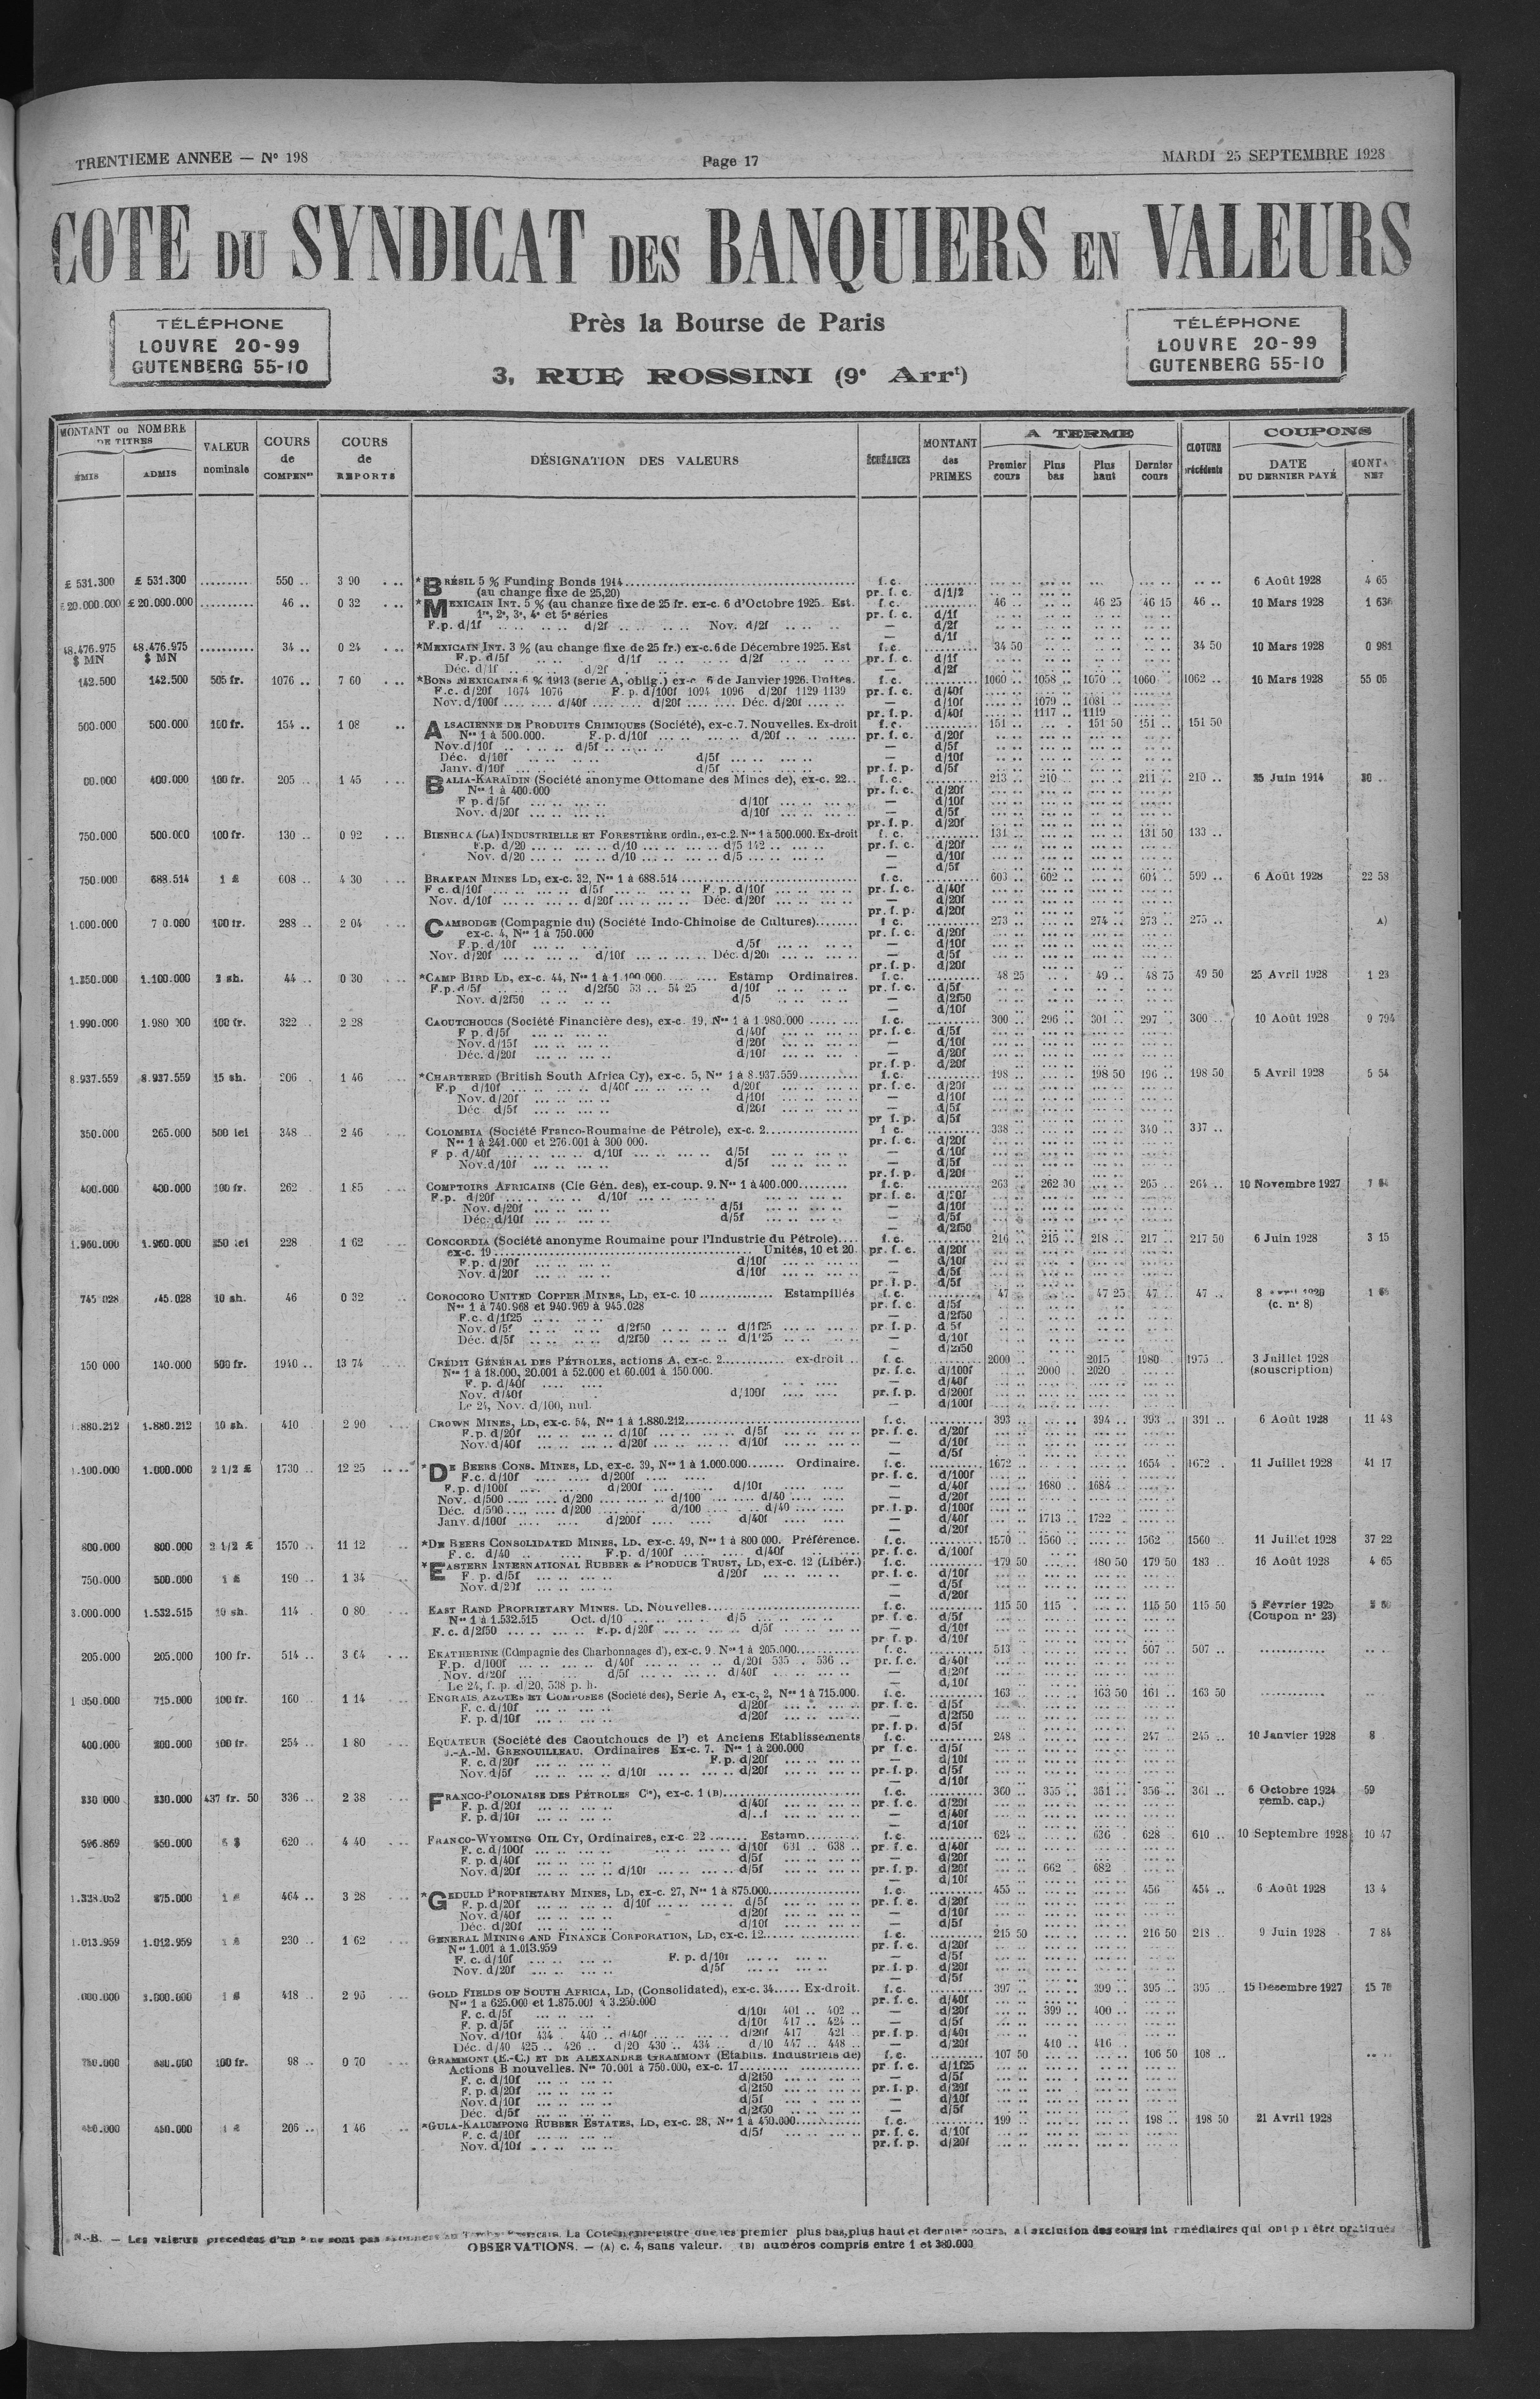 TRENTIEME ANNEE — N° 198
Page 17
MARDI 25 SEPTEMBRE 1928
COTE DU SYNDICAT DES BANQUIERS EN VALEURS
TÉLÉPHONE
LOUVRE 20-99
GUTENBERG 55-10
Près la Bourse de Paris
3, RUE ROSSINI (9e Arrt)
TÉLÉPHONE
LOUVRE 20-99
GUTENBERG 55-10
MONTANT ou NOMBRE DE TITRES
ÉMIS ADMIS
VALEUR nominale
COURS de COMPENon
COURS de REPORTS
DÉSIGNATION DES VALEURS
ÉCHÉANCES
MONTANT des PRIMES
A TERME
Premier cours Plus bas Plus haut Dernier cours
CLOTURE précédente
COUPONS
DATE DU DERNIER PAYÉ
MONTt NET
£ 531.300 £ 531.300 .......... 550 .. 3 90 *BRÉSIL 5 % Funding Bonds 1914 f. c. 6 Août 1928 4 65
(au change fixe de 25,20) pr. f. c. d/1/2
£ 20.000.000 £ 20.000.000 .......... 46 .. 0 32 *MEXICAIN INT. 5 % (au change fixe de 25 fr. ex-c. 6 d'Octobre 1925. Est. f. c. 46 .. 46 25 46 15 46 .. 10 Mars 1928
1re, 2e, 3e, 4e et 5e séries pr. f. c. d/1f
F.p. d/1f d/2f Nov. d/2f — d/2f
— d/1f
48.476.975 $ MN 48.476.975 $ MN .......... 34 .. 0 24 *MEXICAIN INT. 3 % (au change fixe de 25 fr.) ex-c. 6 de Décembre 1925. Est f. c. 34 50 34 50 10 Mars 1928 0 981
F.p. d/5f d/1f d/2f pr. f. c. d/1f
Déc. d/1f d/2f — d/2f
142.500 142.500 505 fr. 1076 .. 7 60 *BONS MEXICAINS 6 % 1913 (serie A, oblig.) ex-c 6 de Janvier 1926. Unités. f. c. 1060 .. 1058 .. 1070 .. 1060 .. 1062 .. 10 Mars 1928 55 05
F.c. d/20f 1074 1076 F. p. d/100f 1094 1096 d/20f 1129 1139 pr. f. c. d/40f
Nov. d/100f d/40f d/20f Déc. d/20f — d/10f 1079 .. 1081 ..
pr. f. p. d/40f 1117 .. 1119
500.000 500.000 100 fr. 154 .. 1 08 ALSACIENNE DE PRODUITS CHIMIQUES (Société), ex-c. 7. Nouvelles. Ex-droit f. c. 151 .. 151 50 151 .. 151 50
Nos 1 à 500.000. F. p. d/10f d/20f pr. f. c. d/20f
Nov. d/10f d/5f — d/5f
Déc. d/10f d/5f — d/10f
Janv. d/10f d/5f pr. f. p. d/5f
400.000 100 fr. 205 .. 1 45 BALIA-KARAÏDIN (Société anonyme Ottomane des Mines de), ex-c. 22 f. c. 213 .. 210 .. 211 .. 210 .. 25 Juin 1914
Nos 1 à 400.000 pr. f. c. d/20f
F p. d/5f d/10f — d/10f
Nov. d/20f d/10f — d/5f
pr. f. p. d/20f
750.000 500.000 100 fr. 130 .. 0 92 BIENHOA (LA) INDUSTRIELLE ET FORESTIÈRE ordin., ex-c. 2. Nos 1 à 500.000. Ex-droit f. c. 131 .. 131 50 133 ..
F.p. d/20 d/10 d/5 142 pr. f. c. d/20f
Nov. d/20 d/10 d/5 — d/10f
— d/5f
750.000 688.514 1 £ 608 .. 4 30 BRAKPAN MINES LD, ex-c. 32, Nos 1 à 688.514 f. c. 603 .. 602 .. 604 .. 599 .. 6 Août 1928 22 58
F c. d/10f d/5f F. p. d/10f pr. f. c. d/40f
Nov. d/10f d/20f Déc. d/20f — d/20f
pr. f. p. d/20f
1.000.000 100 fr. 288 .. 2 04 CAMBODGE (Compagnie du) (Société Indo-Chinoise de Cultures) f c. 273 .. 274 .. 273 .. 275 .. A)
ex-c. 4, Nos 1 à 750.000 pr. f. c. d/20f
F. p. d/10f d/5f — d/10f
Nov. d/20f d/10f Déc. d/20f — d/5f
pr. f. p. d/20f
1.250.000 1.100.000 2 sh. 44 .. 0 30 *CAMP BIRD LD, ex-c. 44, Nos 1 à 1.100.000 Estamp Ordinaires. f. c. 48 25 49 .. 48 75 49 50 25 Avril 1928 1 23
F.p. d/5f d/2f50 53 .. 54 25 d/10f pr. f. c. d/5f
Nov. d/2f50 d/5 — d/2f50
— d/10f
1.990.000 1.980.000 100 fr. 322 .. 2 28 CAOUTCHOUCS (Société Financière des), ex-c. 19, Nos 1 à 1.980.000 f. c. 300 .. 296 .. 301 .. 297 .. 300 .. 10 Août 1928 9 794
F p. d/5f d/40f pr. f. c. d/5f
Nov. d/15f d/20f — d/10f
Déc. d/20f d/10f — d/20f
pr. f. p. d/20f
8.937.559 8.937.559 15 sh. 206 . 1 46 *CHARTERED (British South Africa Cy), ex-c. 5, Nos 1 à 8.937.559 f. c. 198 .. 198 50 196 .. 198 50 5 Avril 1928 5 54
F.p. d/10f d/40f d/20f pr. f. c. d/20f
Nov. d/20f d/10f — d/10f
Déc. d/5f d/20f — d/5f
pr f. p. d/5f
350.000 265.000 500 lei 348 .. 2 46 COLOMBIA (Société Franco-Roumaine de Pétrole), ex-c. 2 f c. 338 .. 340 .. 337 ..
Nos 1 à 241.000 et 276.001 à 300 000. pr. f. c. d/20f
F p. d/40f d/10f d/5f — d/10f
Nov. d/10f d/5f — d/5f
pr. f. p. d/20f
400.000 400.000 100 fr. 262 . 1 85 COMPTOIRS AFRICAINS (Cie Gén. des), ex-coup. 9. Nos 1 à 400.000 f. c. 263 .. 262 30 265 .. 264 .. 10 Novembre 1927
F.p. d/20f d/10f pr. f. c. d/20f
Nov. d/20f d/5f — d/10f
Déc. d/10f d/5f — d/5f
— d/2f50
1.960.000 1.960.000 250 lei 228 1 62 CONCORDIA (Société anonyme Roumaine pour l'Industrie du Pétrole) f. c. 216 .. 215 .. 218 .. 217 .. 217 50 6 Juin 1928 3 15
ex-c. 19 Unités, 10 et 20. pr. f. c. d/20f
F. p. d/20f d/10f — d/10f
Nov. d/20f d/10f — d/5f
pr. f. p. d/5f
745 028 745.028 10 sh. 46 0 32 COROCORO UNITED COPPER MINES, LD, ex-c. 10 Estampillés f. c. 47 .. 47 25 47 .. 47 ..
Nos 1 à 740.968 et 940.969 à 945.028 pr. f. c. d/5f (c. n° 8)
F.c. d/1f25 — d/2f50
Nov. d/5f d/2f50 d/1f25 pr. f. p. d 5f
Déc. d/5f d/2f50 d/1f25 — d/10f
— d/2f50
150 000 140.000 500 fr. 1940 .. 13 74 CRÉDIT GÉNÉRAL DES PÉTROLES, actions A, ex-c. 2 ex-droit f. c. 2000 .. 2015 1980 .. 1975 .. 3 Juillet 1928
Nos 1 à 18.000, 20.001 à 52.000 et 60.001 à 150.000. pr. f. c. d/100f 2000 . 2020 (souscription)
F. p. d/40f — d/40f
Nov. d/40f d/100f pr. f. p. d/200f
Le 24, Nov. d/100, nul. — d/100f
1.880.212 1.880.212 10 sh. 410 . 2 90 CROWN MINES, LD, ex-c. 54, Nos 1 à 1.880.212 f. c. 393 .. 394 .. 393 .. 391 .. 6 Août 1928 11 48
F.p. d/20f d/10f d/5f pr. f. c. d/20f
Nov. d/40f d/20f d/10f — d/10f
— d/5f
1.100.000 1.000.000 2 1/2 £ 1730 .. 12 25 *DE BEERS CONS. MINES, LD, ex-c. 39, Nos 1 à 1.000.000 Ordinaire. f. c. 1672 .. 1654 .. 1672 .. 11 Juillet 1928 41 17
F.c. d/10f d/200f pr. f. c. d/100f
F. p. d/100f d/200f d/10f — d/40f 1680 .. 1684 ..
Nov. d/500 d/200 d/100 d/40 — d/20f
Déc. d/500 d/200 d/100 d/40 pr. f. p. d/100f
Janv. d/100f d/200f d/40f — d/40f 1713 .. 1722 ..
— d/20f
800.000 800.000 2 1/2 £ 1570 .. 11 12 *DE BEERS CONSOLIDATED MINES, LD. ex-c. 49, Nos 1 à 800 000. Préférence. f. c. 1570 .. 1560 .. 1562 1560 .. 11 Juillet 1928 37 22
F. c. d/40 F.p. d/100f d/40f pr. f. c. d/100f
750.000 500.000 1 £ 190 .. 1 34 *EASTERN INTERNATIONAL RUBBER & PRODUCE TRUST, LD, ex-c. 12 (Libér.) f. c. 179 50 180 50 179 50 183 .. 16 Août 1928 4 65
F. p. d/5f d/20f pr. f. c. d/10f
Nov. d/20f — d/5f
— d/20f
3.000.000 1.532.515 10 sh. 114 . 0 80 EAST RAND PROPRIETARY MINES. LD. Nouvelles f. c. 115 50 115 .. 115 50 115 50 5 Février 1925
Nos 1 à 1.532.515 Oct. d/10 d/5 pr. f. c. d/5f (Coupon n° 23)
F. c. d/2f50 F.p. d/20f d/5f — d/10f
pr f. p. d/10f
205.000 205.000 100 fr. 514 .. 3 64 EKATHERINE (Compagnie des Charbonnages d'), ex-c. 9 Nos 1 à 205.000 f. c. 513 507 .. 507 ..
F.p. d/100f d/40f d/20f 535 .. 536 .. pr. f. c. d/40f
Nov. d/20f d/5f d/40f — d/20f
Le 24, f. p. d/20, 538 p. h. — d/10f
1 050.000 715.000 100 fr. 160 .. 1 14 ENGRAIS AZOTÉS ET COMPOSÉS (Société des), Serie A, ex-c, 2, Nos 1 à 715.000. f. c. 163 .. 163 50 161 .. 163 50
F. c. d/10f d/20f pr. f. c. d/5f
F. p. d/10f d/20f — d/2f50
pr. f. p. d/5f
400.000 200.000 100 fr. 254 .. 1 80 EQUATEUR (Société des Caoutchoucs de l') et Anciens Etablissements f. c. 248 .. 247 .. 245 .. 10 Janvier 1928 8
J.-A.-M. GRENOUILLEAU. Ordinaires Ex-c. 7. Nos 1 à 200.000 pr f. c. d/5f
F. c. d/20f F. p. d/20f — d/10f
Nov. d/5f d/10f d/20f pr. f. p. d/5f
— d/10f
330 000 330.000 437 fr. 50 336 .. 2 38 FRANCO-POLONAISE DES PÉTROLES Cie), ex-c. 1 (B) f. c. 360 .. 355 .. 361 .. 356 .. 361 .. 6 Octobre 1924 59
F. p. d/20f d/40f pr. f. c. d/20f remb. cap.)
F. p. d/10f — d/40f
— d/10f
596.869 550.000 5 $ 620 .. 4 40 FRANCO-WYOMING OIL CY, Ordinaires, ex-c. 22 Estamp. f. c. 624 .. 636 . 628 .. 610 .. 10 Septembre 1928 10 47
F. c. d/100f d/10f 631 .. 638 .. pr. f. c. d/40f
F. p. d/40f d/5f — d/20f
Nov. d/20f d/10f d/5f pr. f. p. d/20f 662 . 682 ..
— d/10f
875.000 1 £ 464 .. 3 28 *GEDULD PROPRIETARY MINES, LD, ex-c. 27, Nos 1 à 875.000 f. c. 455 .. 456 .. 454 .. 6 Août 1928 13 4
F. p. d/20f d/10f d/5f pr. f. c. d/20f
Nov. d/40f d/20f — d/10f
Déc. d/20f d/10f — d/5f
1.013.959 1.012.959 1 £ 230 .. 1 62 GENERAL MINING AND FINANCE CORPORATION, LD, ex-c. 12 f. c. 215 50 216 50 218 .. 9 Juin 1928 7 84
Nos 1.001 à 1.013.959 pr. f. c. d/20f
F. c. d/10f F. p. d/10f — d/5f
Nov. d/20f d/5f pr. f. p. d/20f
— d/5f
1 £ 418 .. 2 95 GOLD FIELDS OF SOUTH AFRICA, LD, (Consolidated), ex-c. 34 Ex-droit. f. c. 397 .. 399 .. 395 .. 395 .. 15 Décembre 1927 15 76
Nos 1 à 625.000 et 1.875.001 à 3.250.000 pr. f. c. d/40f
F. c. d/5f d/10f 401 .. 402 .. — d/20f 399 .. 400 ..
F. p. d/5f d/10f 417 .. 424 .. — d/5f
Nov. d/10f 434 . 440 .. d/40f d/20f 417 421 .. pr. f. p. d/40f
Déc. d/40 425 .. 426 .. d/20 430 .. 434 .. d/10 447 .. 448 .. — d/20f 410 .. 416 ..
100 fr. 98 .. 0 70 GRAMMONT (E.-C.) ET DE ALEXANDRE GRAMMONT (Etablis. Industriels de) f. c. 107 50 106 50 108 ..
Actions B nouvelles. Nos 70.001 à 750.000, ex-c. 17 pr f. c. d/1f25
F. c. d/10f d/2f50 — d/5f
F. p. d/20f d/2f50 pr. f. p. d/20f
Nov. d/10f d/5f — d/10f
Déc. d/5f d/2f50 — d/5f
450.000 1 £ 206 .. 1 46 *GULA-KALUMPONG RUBBER ESTATES, LD, ex-c. 28, Nos 1 à 450.000 f. c. 199 .. 198 .. 198 50 21 Avril 1928
F. c. d/10f d/5f pr. f. c. d/10f
Nov. d/10f pr. f. p. d/20f
N.-B. — Les valeurs précédées d'un * ne sont pas La Cote n'enregistre que les premier plus bas, plus haut et dernier cours, à l'exclusion des cours intermédiaires qui ont pu être pratiqués
OBSERVATIONS. — (A) c. 4, sans valeur. (B) numéros compris entre 1 et 380.000